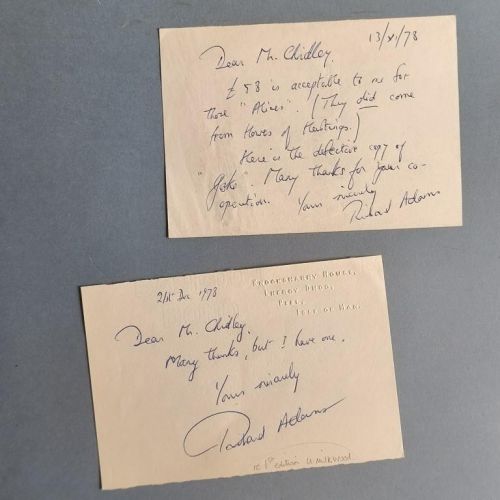 13/XI/78
Dear Mr. Chidley.
£58 is acceptable to me for
those "Alices". (They did come
from Howes of Hastings.)
Here is the defective copy of
Many thanks for your co-
operation. Yours sincerely
Richard Adams
Knocksharry House,
Lhergy Dhoo,
Peel,
Isle of Man.
21st Dec 1978
Dear Mr. Chidley.
Many thanks, but I have one.
Yours sincerely
Richard Adams
1st edition